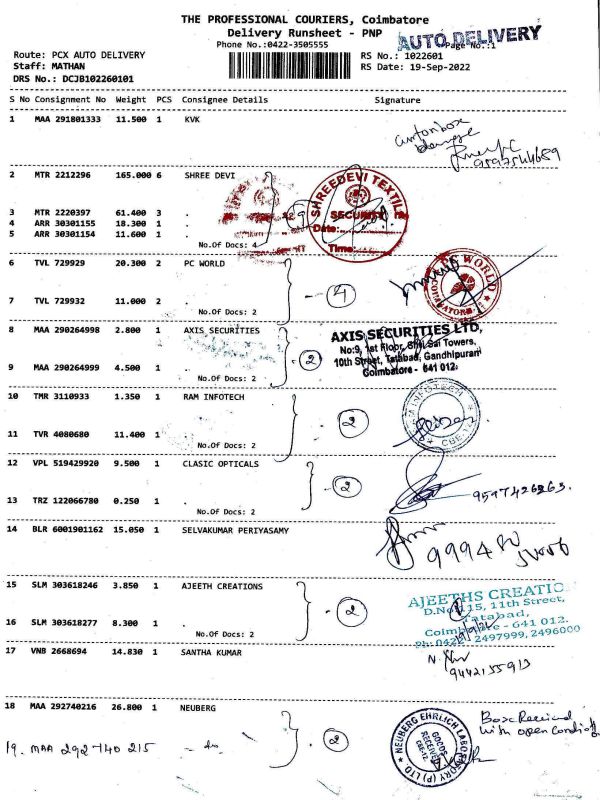 THE PROFESSIONAL COURIERS, Coimbatore
Delivery Runsheet - PNP
AUTO DELIVERY
Phone No.:0422-3505555
Page No.:1
Route: PCX AUTO DELIVERY
RS No.: 1022601
Staff: MATHAN
RS Date: 19-Sep-2022
DRS No.: DCJB102260101
S No Consignment No Weight PCS Consignee Details Signature
1 MAA 291801333 11.500 1 KVK
cartonbox
9597544689
2 MTR 2212296 165.000 6 SHREE DEVI
SHREEDEVI TEXTILE
SECURITY
Date:
Time:
3 MTR 2220397 61.400 3 .
4 ARR 30301155 18.300 1 .
5 ARR 30301154 11.600 1 .
No.Of Docs: 4
6 TVL 729929 20.300 2 PC WORLD
PC WORLD
COIMBATORE
4
7 TVL 729932 11.000 2 .
No.Of Docs: 2
8 MAA 290264998 2.800 1 AXIS SECURITIES
AXIS SECURITIES LTD,
No:9, 1st Floor, Shri Sai Towers,
10th Street, Tatabad, Gandhipuram
Coimbatore - 641 012.
2
9 MAA 290264999 4.500 1 .
No.Of Docs: 2
10 TMR 3110933 1.350 1 RAM INFOTECH
2
11 TVR 4080680 11.400 1 .
No.Of Docs: 2
12 VPL 519429920 9.500 1 CLASIC OPTICALS
2
9597426263.
13 TRZ 122066780 0.250 1 .
No.Of Docs: 2
14 BLR 6001901162 15.050 1 SELVAKUMAR PERIYASAMY
15 SLM 303618246 3.850 1 AJEETH CREATIONS
AJEETHS CREATIO
D.No:115, 11th Street,
Tatabad,
Coimbatore - 641 012.
Ph: 0422 - 2497999, 2496000
2
16 SLM 303618277 8.300 1 .
No.Of Docs: 2
17 VNB 2668694 14.830 1 SANTHA KUMAR
9442155913
18 MAA 292740216 26.800 1 NEUBERG
NEUBERG EHRLICH LABORATORY (P) LTD.
GOODS
RECEIVED
CBE-12
Box Received
with open Condition
2
19. MAA 292740 215 - do